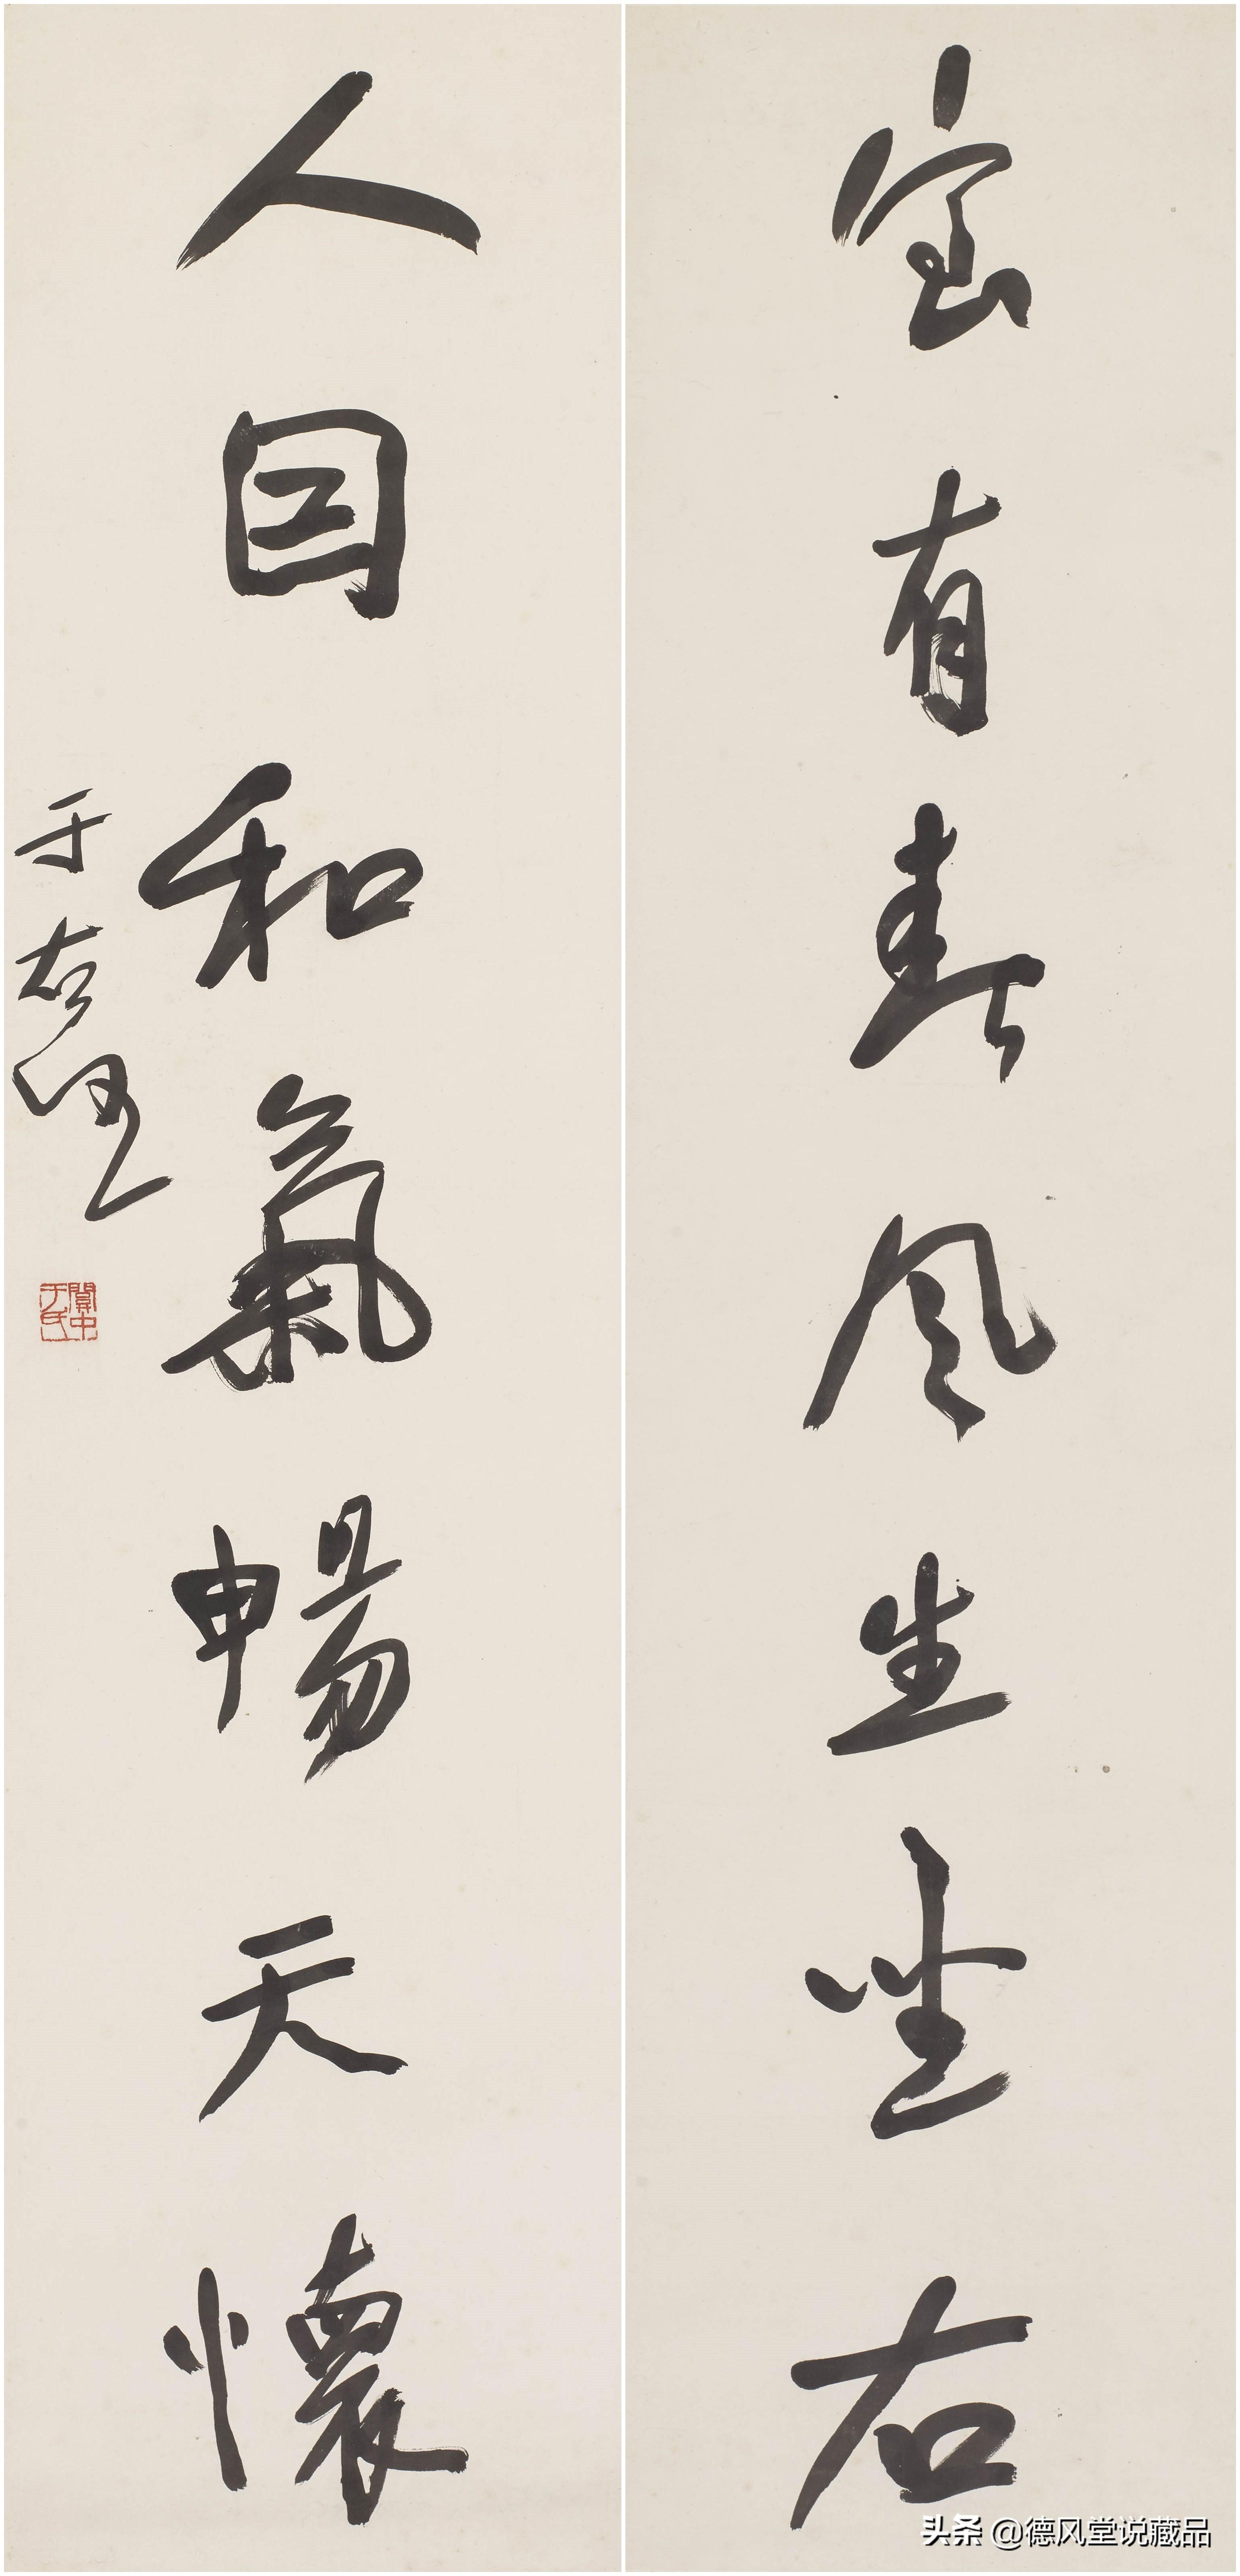 室有春风生坐右
人因和氣暢天懷
于右任
關中于氏
头条 @德风堂说藏品